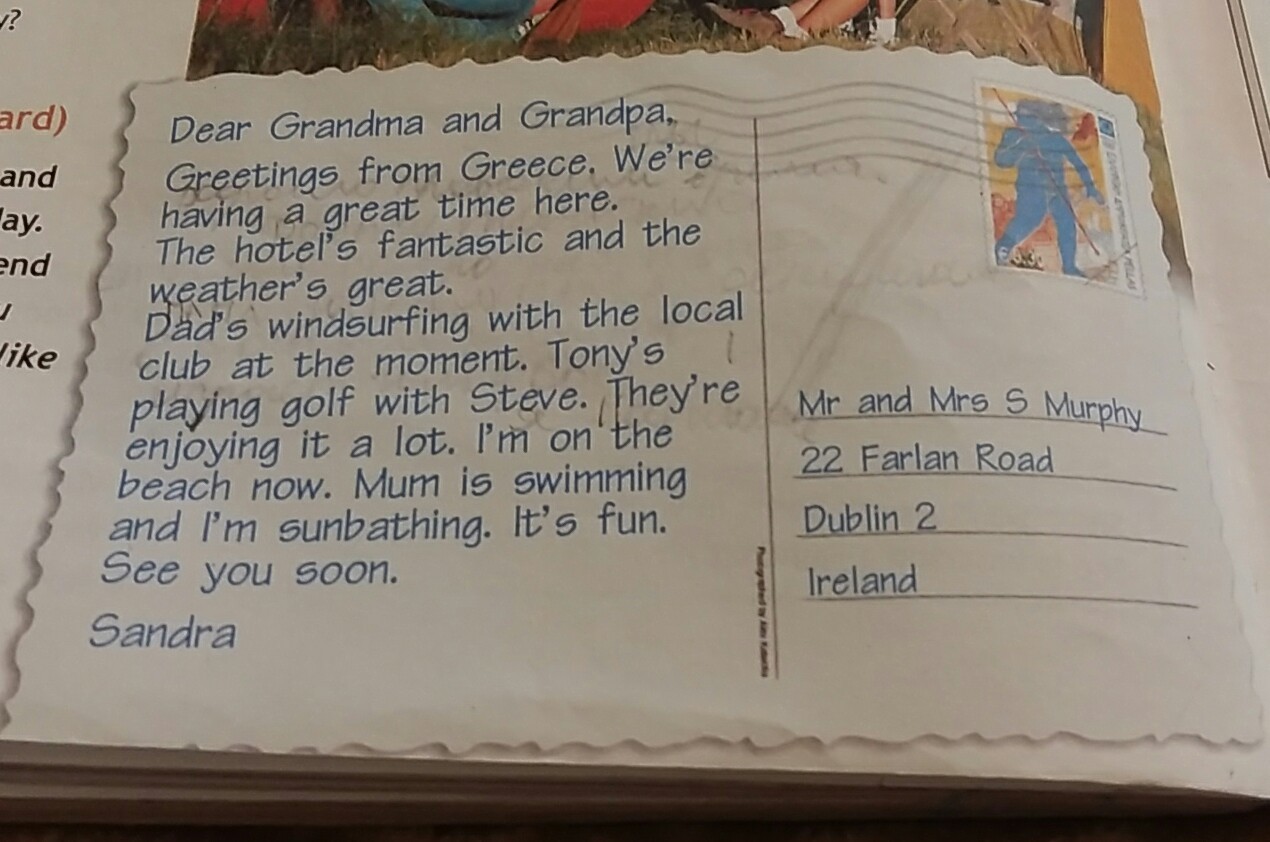 y?
ard)
and
lay.
end
like
Dear Grandma and Grandpa,
Greetings from Greece. We're
having a great time here.
The hotel's fantastic and the
weather's great.
Dad's windsurfing with the local
club at the moment. Tony's
playing golf with Steve. They're
enjoying it a lot. I'm on the
beach now. Mum is swimming
and I'm sunbathing. It's fun.
See you soon.
Sandra
Photographed by
Mr and Mrs S Murphy
22 Farlan Road
Dublin 2
Ireland